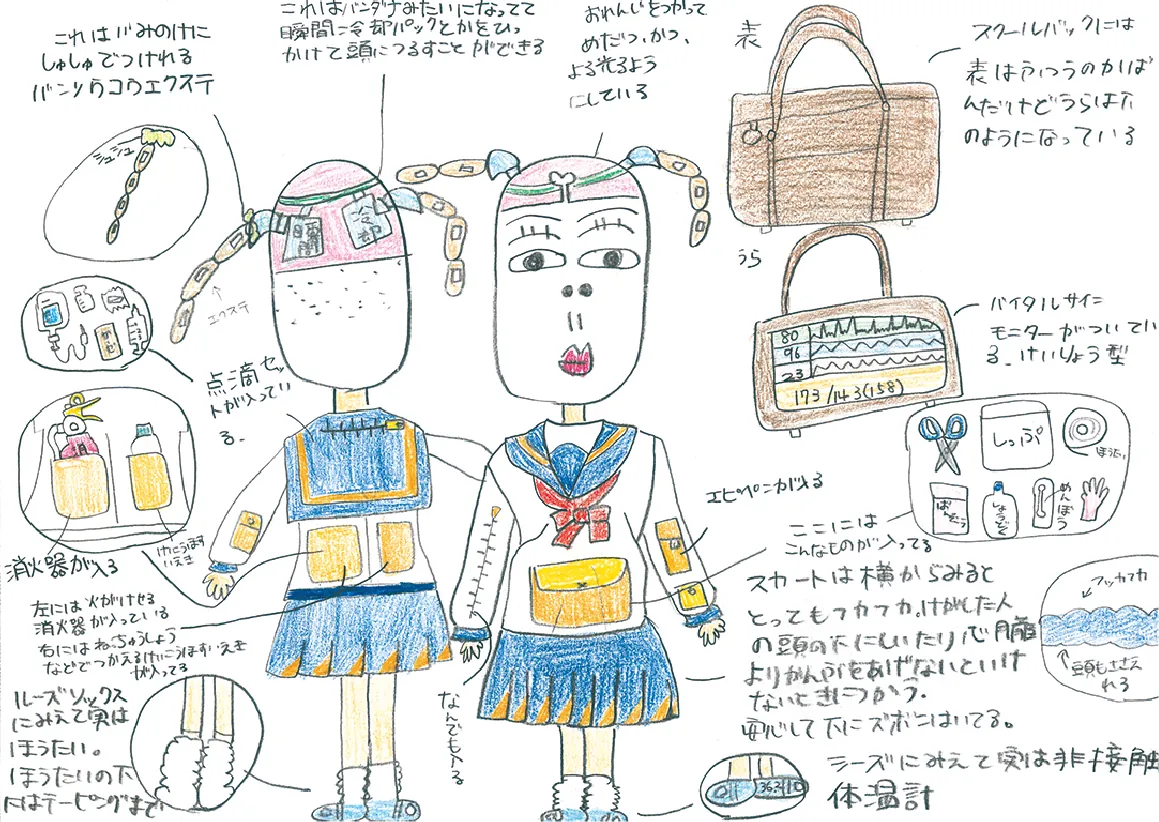 これはかみのけに
しゅしゅでつけれる
バンソウコウエクステ
これはバンダナみたいになってて
瞬間に冷却パックとかをひっ
かけて頭につるすことができる
おれんじをつかって
めだつ、かつ、
よる光るよう
にしている
表
スクールバックには
表はふつうのかば
んだけどうらは穴
のようになっている
シュシュ
瞬間
冷却
エクステ
うら
バイタルサイン
モニターがついてい
る。けいりょう型
80
96
23
173/143(158)
点滴セッ
トが入ってい
る。
しっぷ
ほうたい
ばんそうこう
しょうどく
めんぼう
エピペンが入る
ここには
こんなものが入ってる
消火器が入る
けいこうほすい
えき
左には火がけせる
消火器が入っている
右にはねっちゅうしょう
などでつかえるけいこうほすいえき
が入ってる
スカートは横からみると
とってもフカフカ。けがした人
の頭の下にしいたり心臓
よりかんぶをあげないといけ
ないときにつかう。
安心して下にズボンはいてる。
フッカフカ
頭もささえ
れる
ルーズソックス
にみえて実は
ほうたい。
ほうたいの下
にはテーピングまで
なんでも入る
シーズにみえて実は非接触
体温計
36.3